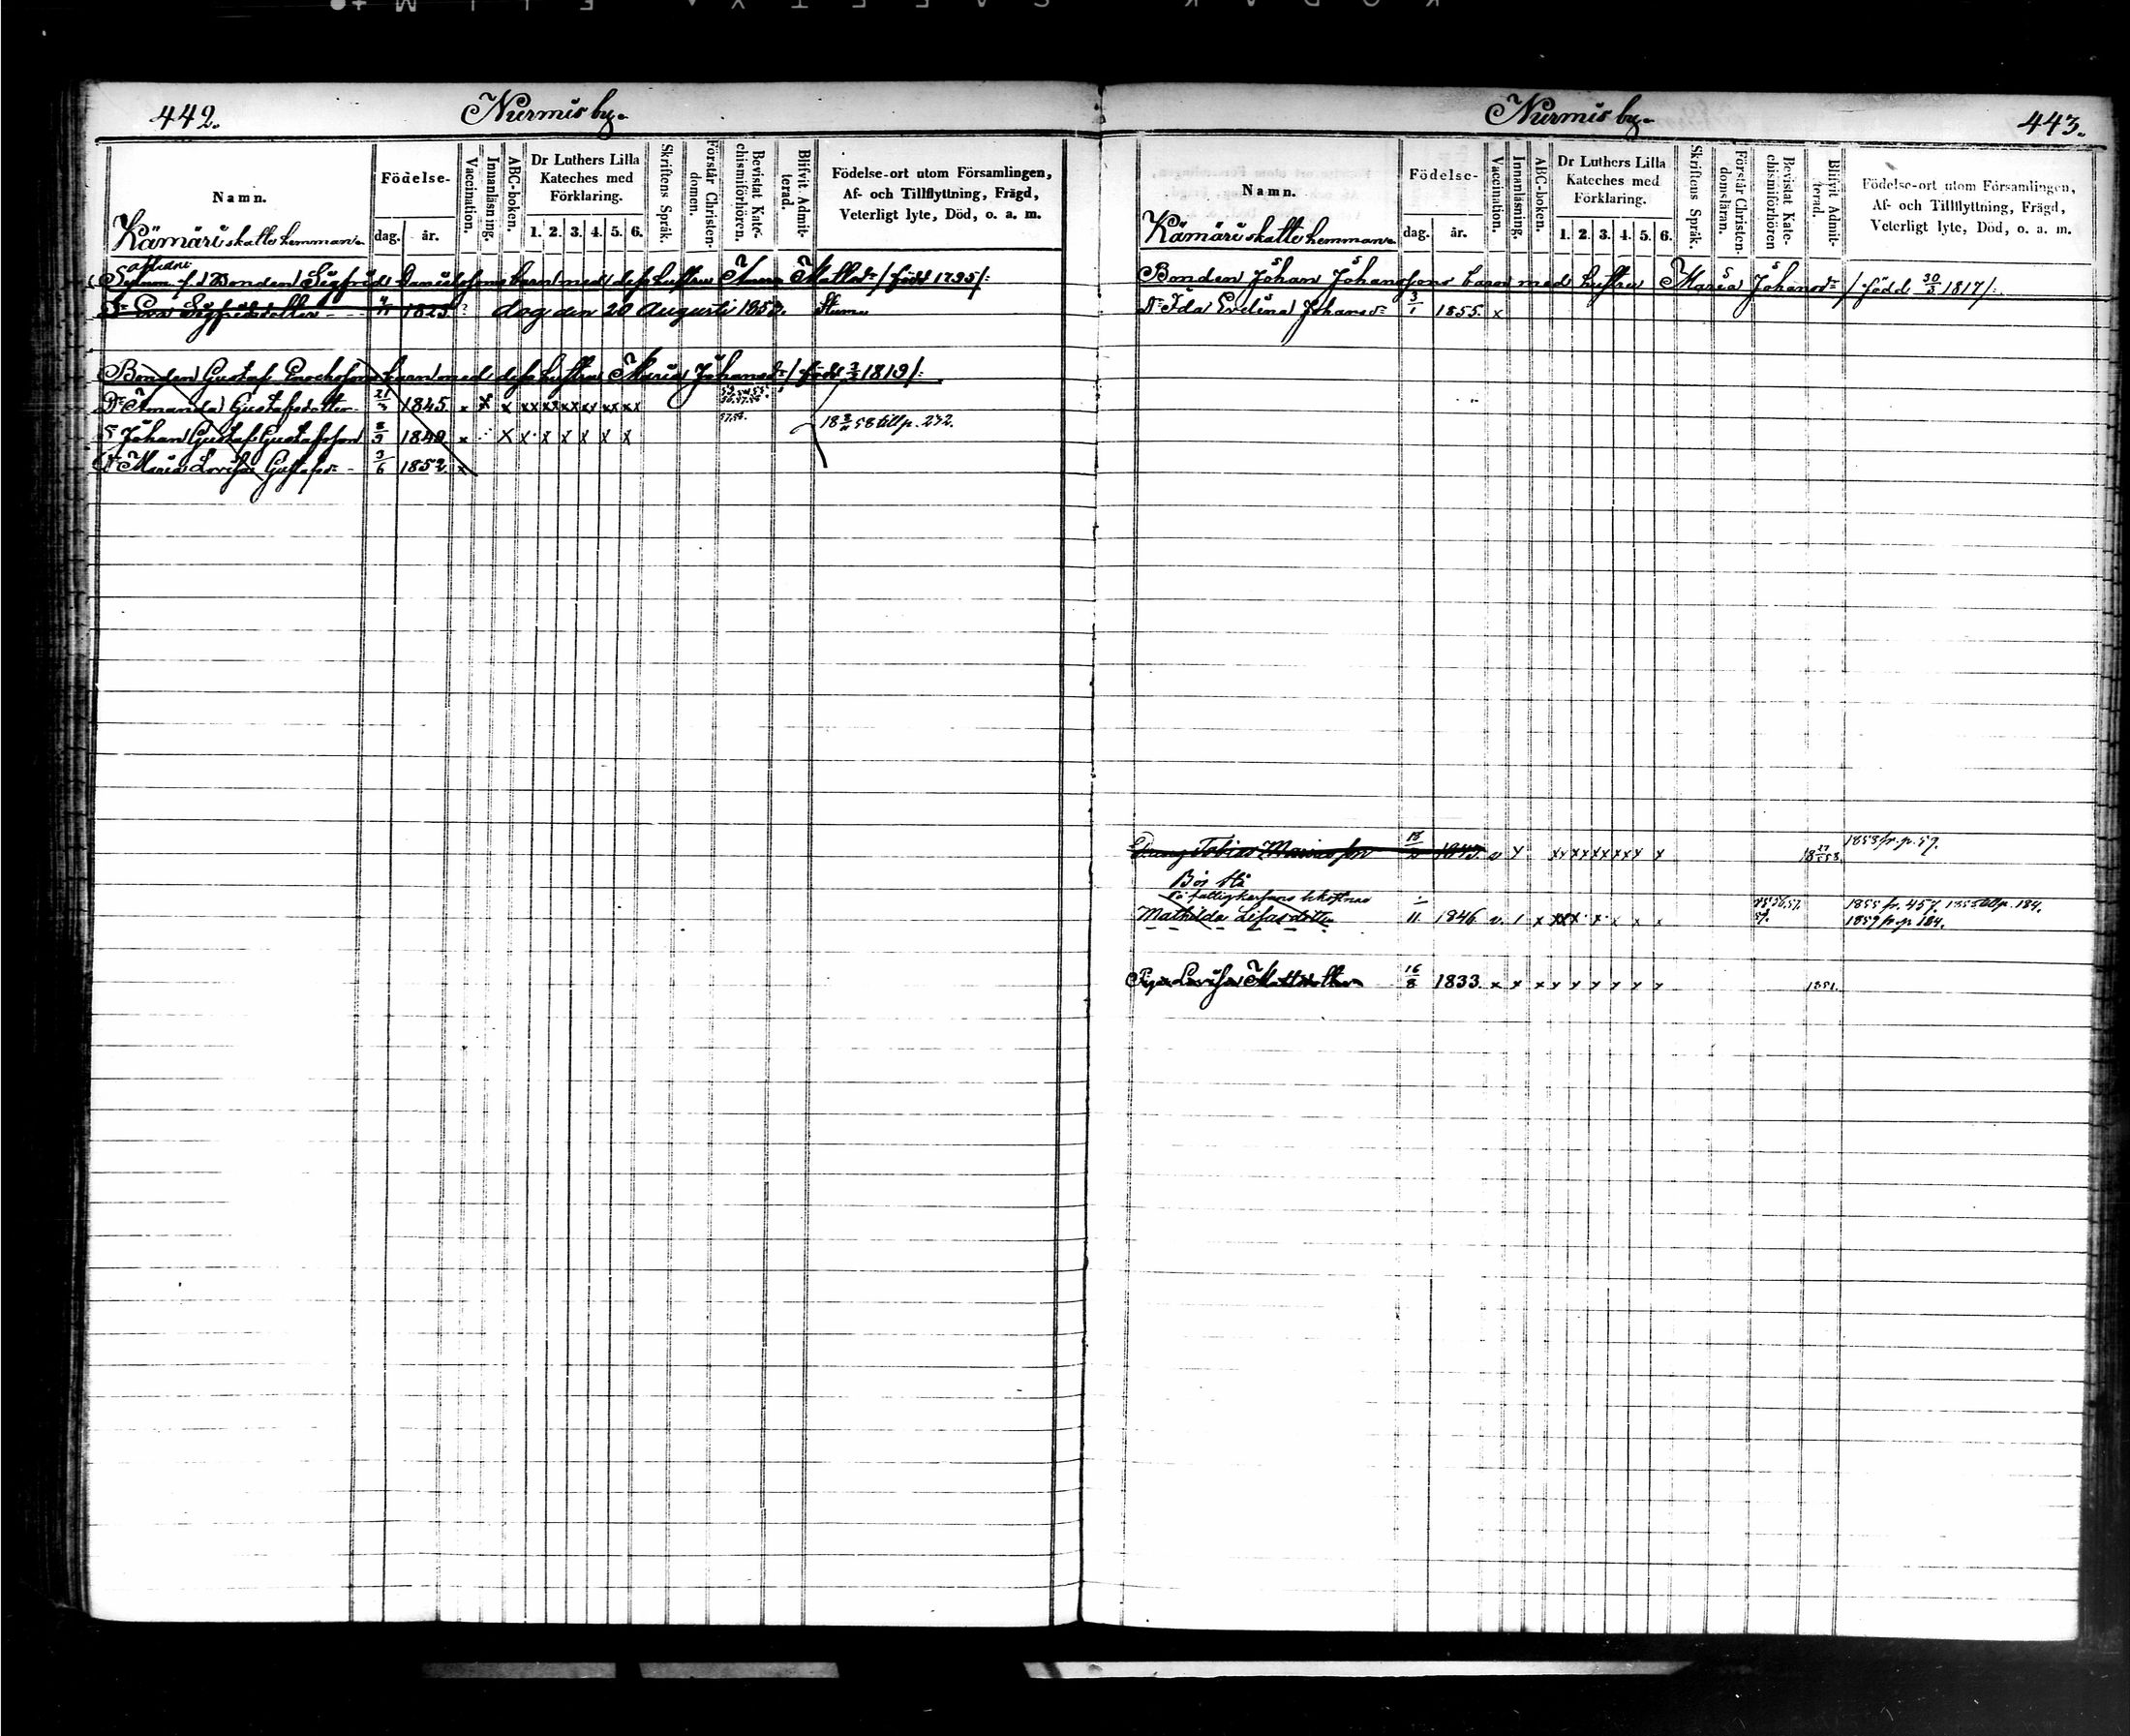 KODAK SAFETY FILM
442.
Nurmis by.
Namn.
Födelse-
dag. år.
Vaccination.
Innanläsning.
ABC-boken.
Dr Luthers Lilla
Kateches med
Förklaring.
1. 2. 3. 4. 5. 6.
Skriftens Språk.
Förstår Christen-
domen.
Bevistat Kate-
chismiförhören.
Blifvit Admit-
terad.
Födelse-ort utom Församlingen,
Af- och Tillflyttning, Frägd,
Veterligt lyte, Död, o. a. m.
Kämäri skatte hemman
f. d. Bonden Sigfrid Danielssons barn med dess hustru Anna Mattsdr /: född 1795 /:
Dr Eva Sigfridsdotter 1823 ? dog den 20 Augusti 1853. Stum
Bonden Gustaf Enochssons barn med dess hustru Maria Johansdr /: född 1819 /:
Dr Amanda Gustafsdotter 21/3 1845 x x x xx xx xx xx xx xx
57.58.
S. Johan Gustaf Gustafsson 1849 x x x x x x x x 58 till p. 232.
Dr Maria Lovisa Gustafsdr 3/6 1852 x
443.
Nurmis by.
Namn.
Födelse-
dag. år.
Vaccination.
Innanläsning.
ABC-boken.
Dr Luthers Lilla
Kateches med
Förklaring.
1. 2. 3. 4. 5. 6.
Skriftens Språk.
Förstår Christen-
domsläran.
Bevistat Kate-
chismiförhören
Blifvit Admit-
terad.
Födelse-ort utom Församlingen,
Af- och Tillflyttning, Frägd,
Veterligt lyte, Död, o. a. m.
Kämäri skatte hemman
Bonden Johan Johanssons barn med hustru Maria Johansdr /: född 30/3 1817 /:
Dr Ida Evelina Johansdr 3/1 1855. x
Dräng Tobias Mariasson 1858 fr. p. 57.
på fattigkassans bekostnad
Mathilda Lisasdotter 11 1846 v. 1855 fr. 457. 1858 till p. 184.
1859 fr. p. 184.
Pigan Lovisa Mattsdotter 16/8 1833 x x x x x x x x x 1851.